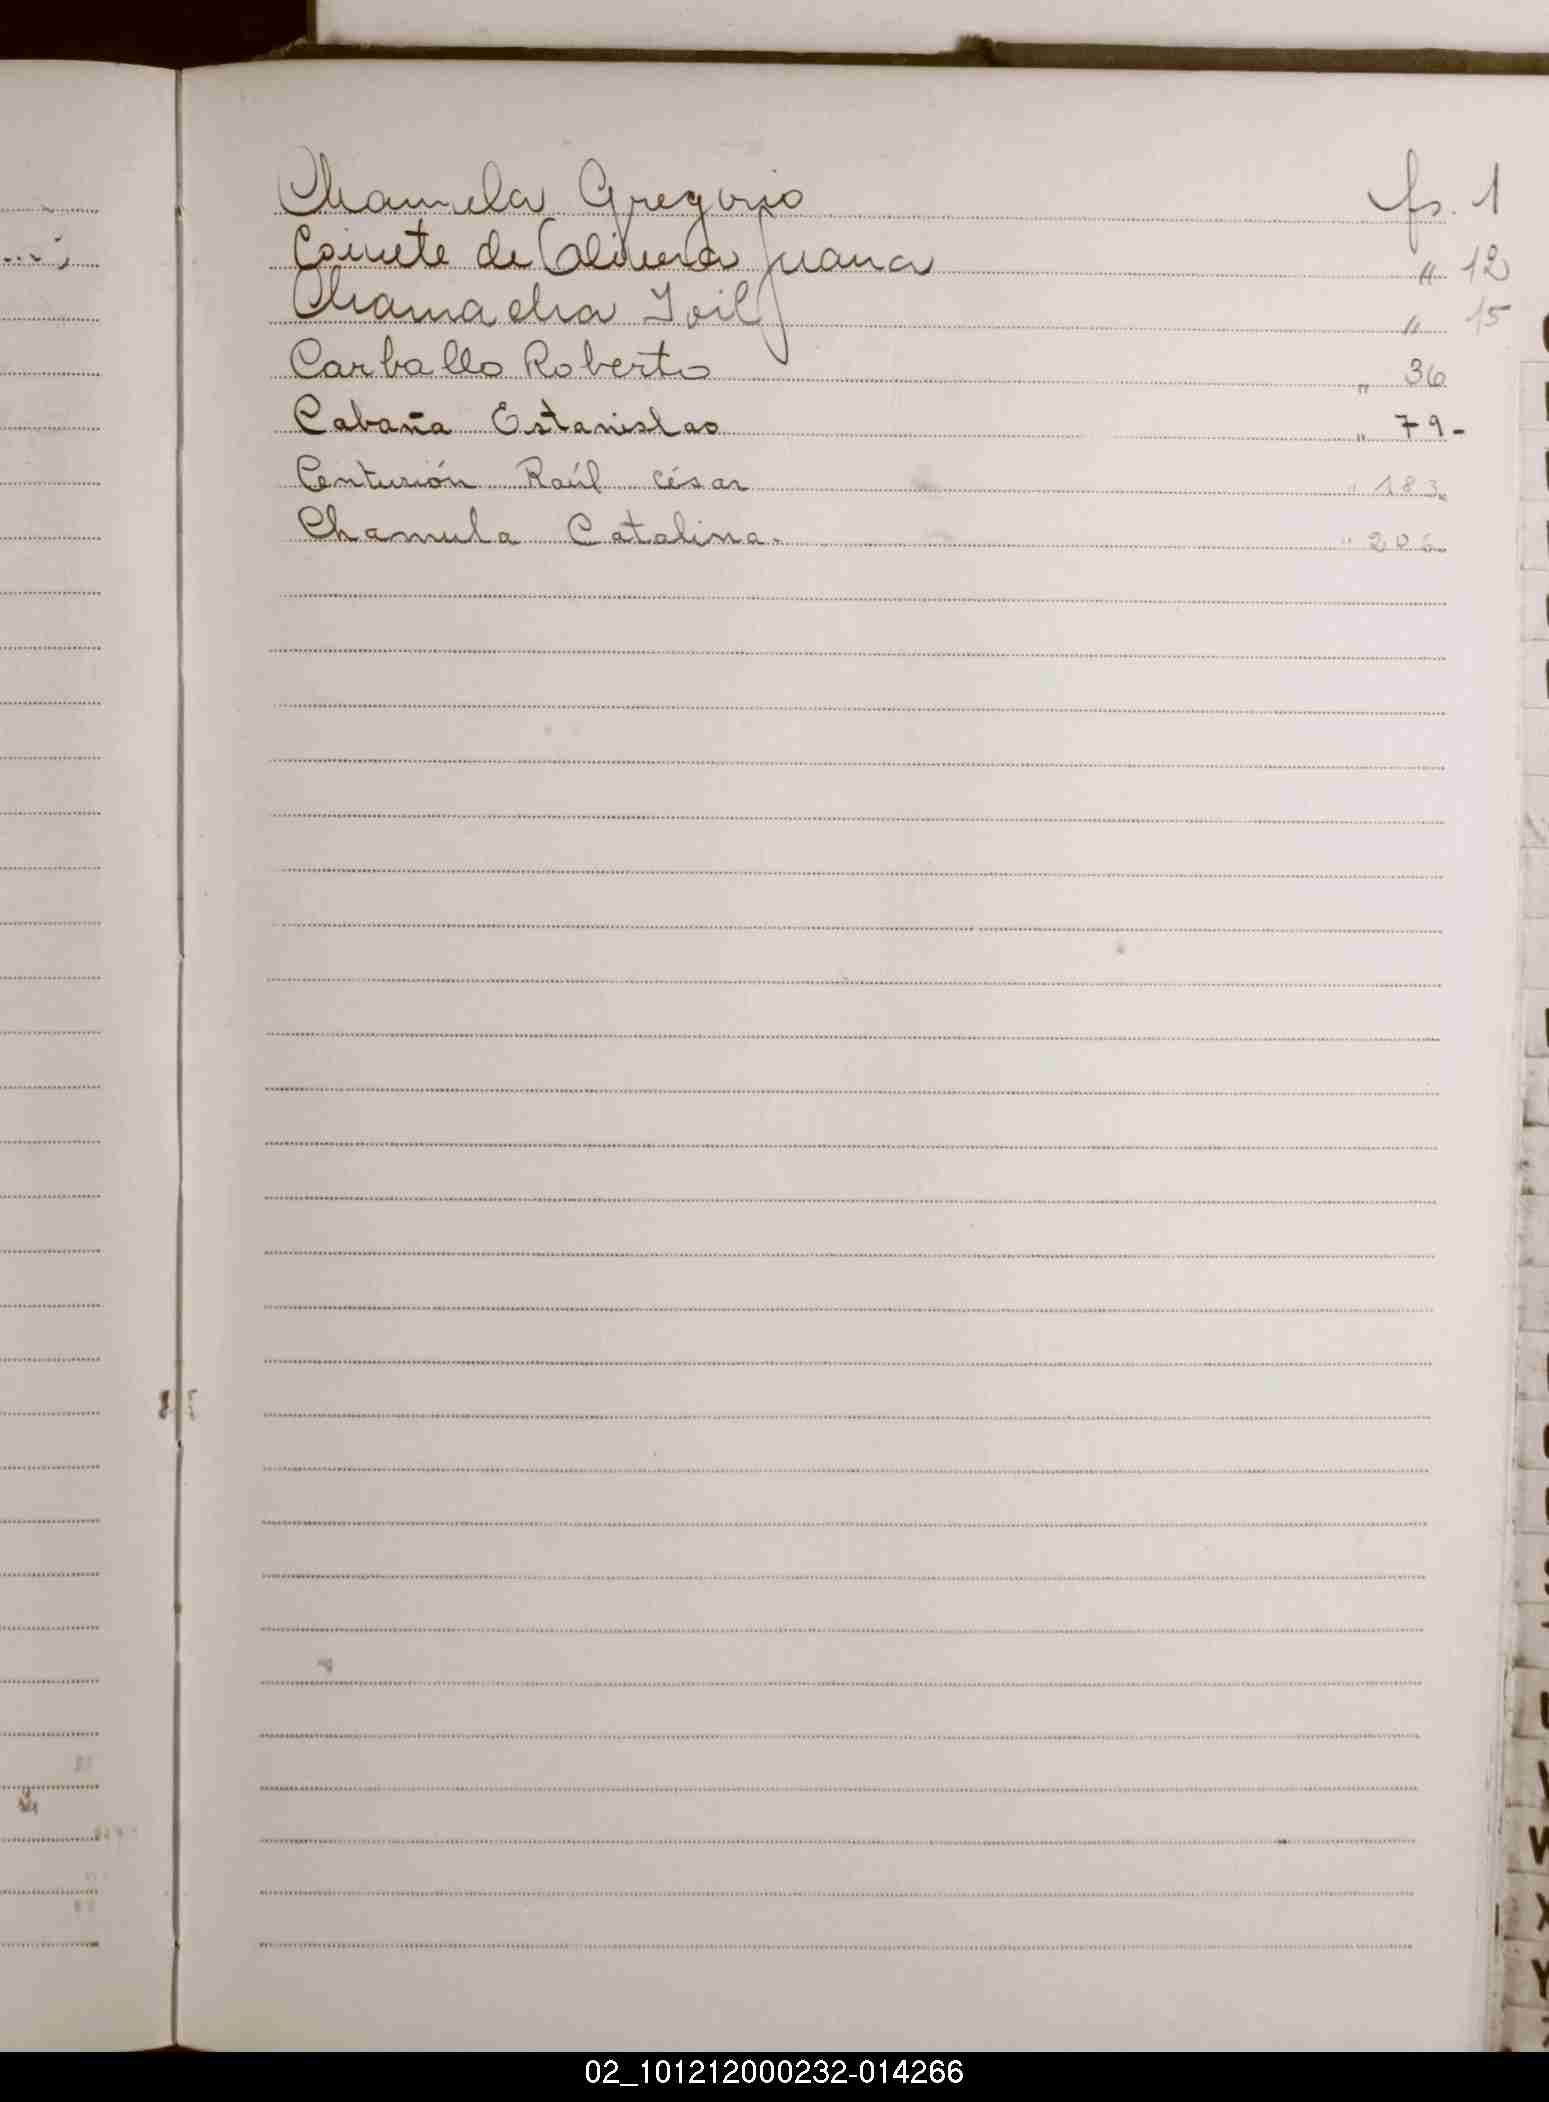 Chamula Gregorio fs. 1
Coinete de Olivera Juana " 12
Chama Ivil " 15
Carballo Roberto " 36
Cabaña Estanislao " 79-
Centurión Raúl César " 183
Chamula Catalina. " 206
S
V
W
X
Y
02_101212000232-014266